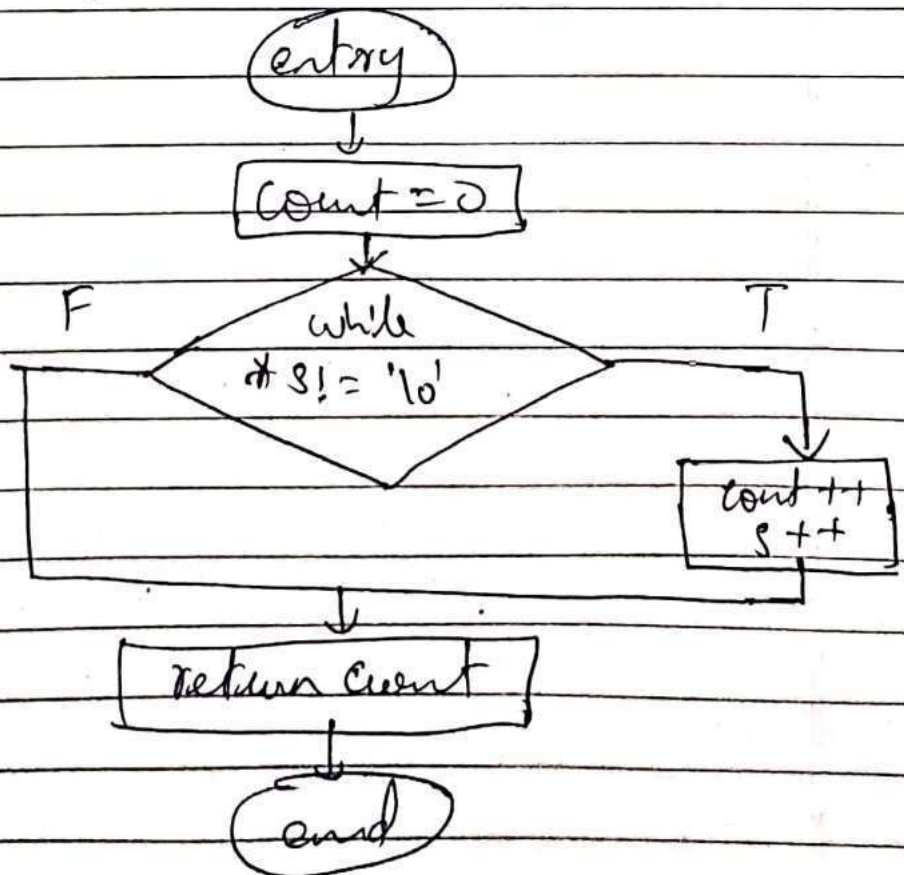 entry
count = 0
F
T
while
* s! = '\0'
cont ++
s ++
return count
end